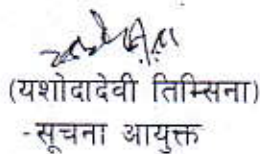 (यशोदादेवी तिम्सिना)
-सूचना आयुक्त